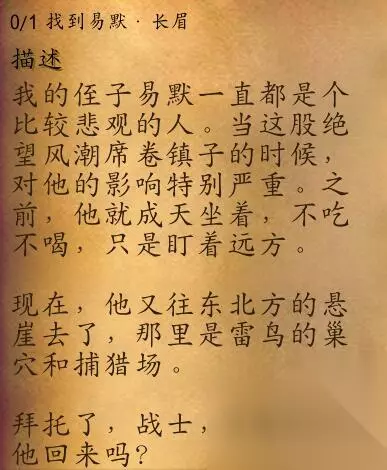 0/1 找到易默·长眉
描述
我的侄子易默一直都是个
比较悲观的人。当这股绝
望风潮席卷镇子的时候，
对他的影响特别严重。之
前，他就成天坐着，不吃
不喝，只是盯着远方。
现在，他又往东北方的悬
崖去了，那里是雷鸟的巢
穴和捕猎场。
拜托了，战士，
他回来吗？